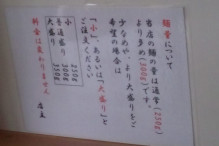 麺の量について
当店の麺の量は通常(250g)
より多めの(300g)です。
少なめや、より大盛りをご
希望の場合は
「小」、あるいは「大盛り」と
ご注文ください
小 250g
普通盛り 300g
大盛り 350g
料金は変わりません
店主